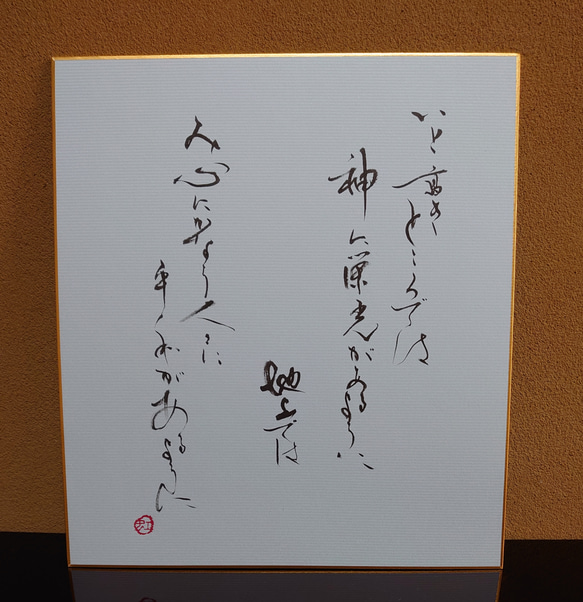 いと高きところでは
神に栄光があるように
地上では
み心にかなう人々に
平和があるように